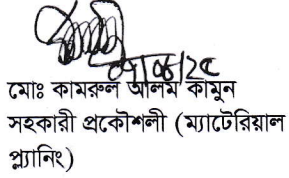 ০৭/০৫/২৫
মোঃ কামরুল আলম কামুন
সহকারী প্রকৌশলী (ম্যাটেরিয়াল
প্ল্যানিং)